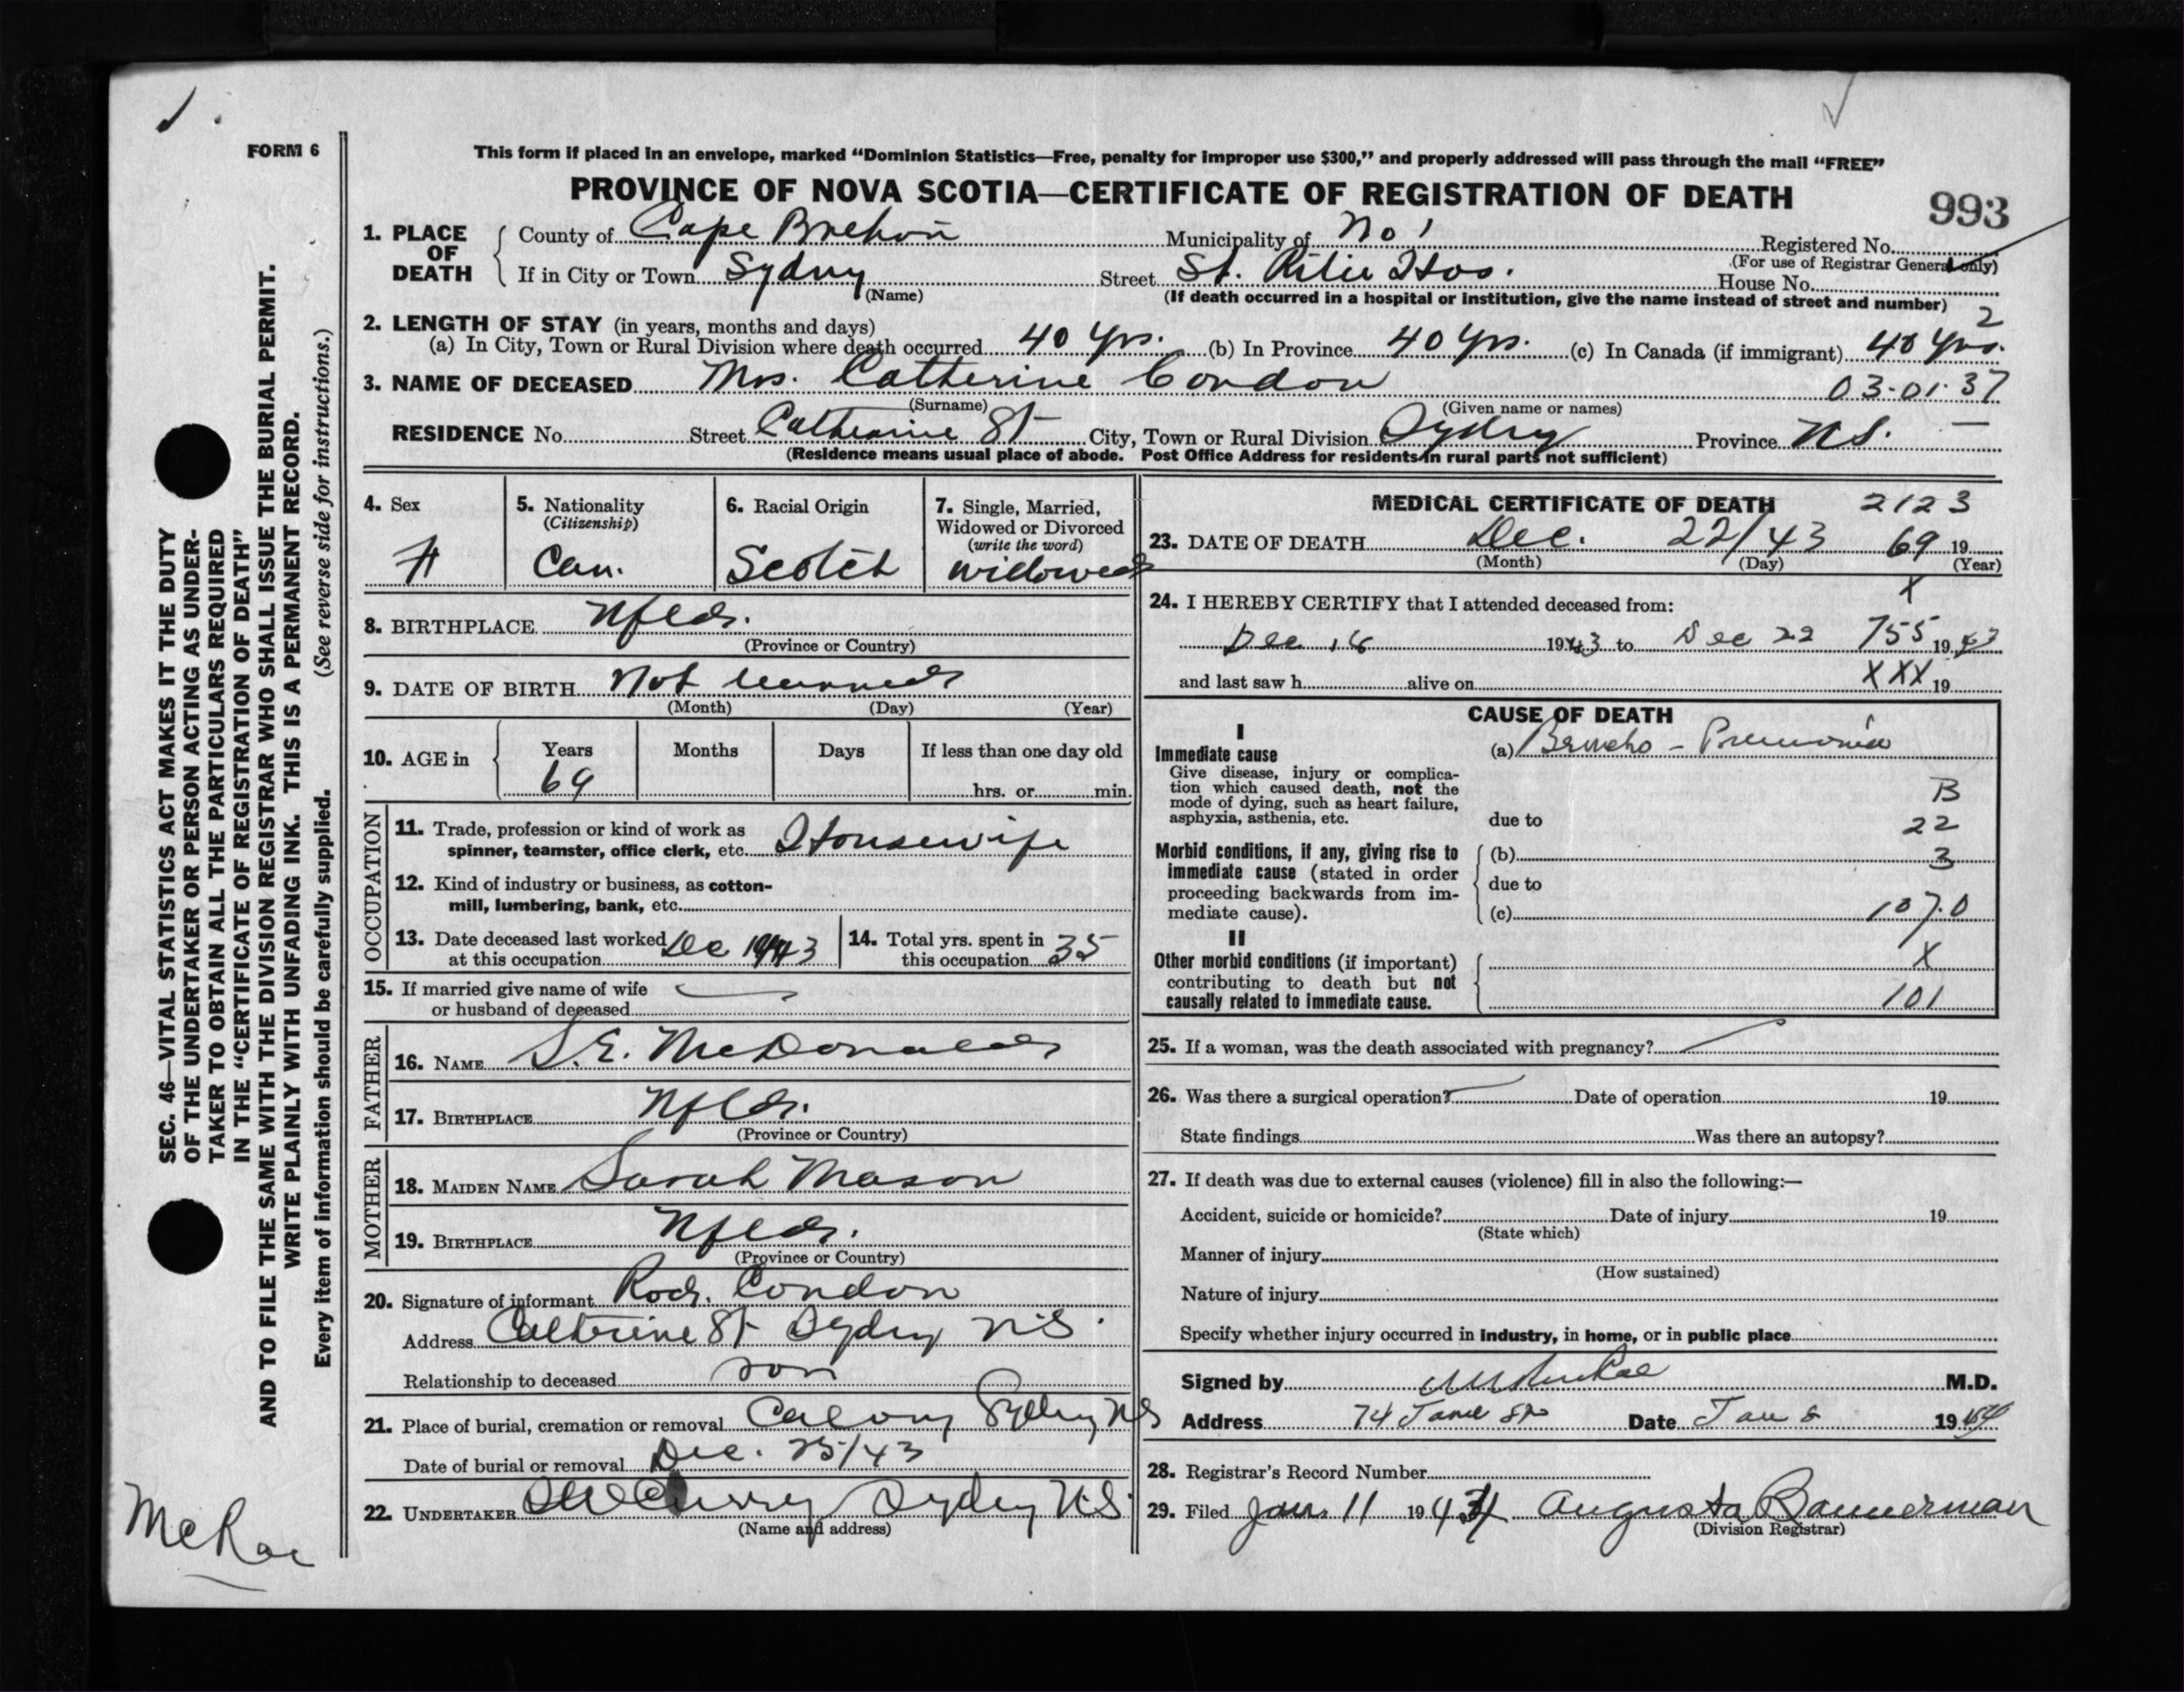 FORM 6
This form if placed in an envelope, marked “Dominion Statistics—Free, penalty for improper use $300,” and properly addressed will pass through the mail “FREE”
PROVINCE OF NOVA SCOTIA—CERTIFICATE OF REGISTRATION OF DEATH
993
1. PLACE OF DEATH
County of Cape Breton Municipality of No 1 Registered No.
(For use of Registrar General only)
If in City or Town Sydney Street St. Ritie Hos. House No.
(Name) (If death occurred in a hospital or institution, give the name instead of street and number)
2. LENGTH OF STAY (in years, months and days) 2
(a) In City, Town or Rural Division where death occurred 40 Yrs. (b) In Province 40 Yrs. (c) In Canada (if immigrant) 40 Yrs.
3. NAME OF DECEASED Mrs. Catherine Condon 03.01.37
(Surname) (Given name or names)
RESIDENCE No. Street Catherine St City, Town or Rural Division Sydney Province N.S.
(Residence means usual place of abode. Post Office Address for residents in rural parts not sufficient)
4. Sex
5. Nationality (Citizenship) Can.
6. Racial Origin Scotch
7. Single, Married, Widowed or Divorced (write the word) widowed
8. BIRTHPLACE Nfld.
(Province or Country)
9. DATE OF BIRTH Not learned
(Month) (Day) (Year)
10. AGE in Years Months Days If less than one day old
69 hrs. or min.
OCCUPATION
11. Trade, profession or kind of work as
spinner, teamster, office clerk, etc. Housewife
12. Kind of industry or business, as cotton-
mill, lumbering, bank, etc.
13. Date deceased last worked at this occupation Dec 1943
14. Total yrs. spent in this occupation 35
15. If married give name of wife
or husband of deceased
FATHER
16. NAME S.E. McDonald
17. BIRTHPLACE Nfld.
(Province or Country)
MOTHER
18. MAIDEN NAME Sarah Mason
19. BIRTHPLACE Nfld.
(Province or Country)
20. Signature of informant Rod. Condon
Address Catherine St Sydney N.S.
Relationship to deceased son
21. Place of burial, cremation or removal Calvary Sydney NS
Date of burial or removal Dec. 25/43
22. UNDERTAKER Curry Sydney N.S.
(Name and address)
MEDICAL CERTIFICATE OF DEATH 2123
23. DATE OF DEATH Dec. 22/43 69 19
(Month) (Day) (Year)
X
24. I HEREBY CERTIFY that I attended deceased from:
Dec 16 1943 to Dec 22 755 1943
and last saw h alive on XXX 19
CAUSE OF DEATH
I
Immediate cause (a) Broncho - Pneumonia
Give disease, injury or complica-
tion which caused death, not the
mode of dying, such as heart failure,
asphyxia, asthenia, etc.
B
due to 22
Morbid conditions, if any, giving rise to
immediate cause (stated in order
proceeding backwards from im-
mediate cause).
(b) 3
due to
(c) 107.0
II
Other morbid conditions (if important)
contributing to death but not
causally related to immediate cause.
X
101
25. If a woman, was the death associated with pregnancy?
26. Was there a surgical operation? Date of operation 19
State findings Was there an autopsy?
27. If death was due to external causes (violence) fill in also the following:—
Accident, suicide or homicide? Date of injury 19
(State which)
Manner of injury
(How sustained)
Nature of injury
Specify whether injury occurred in industry, in home, or in public place
Signed by M.D.
Address 74 Date Jan 8 1944
28. Registrar's Record Number
29. Filed Jan. 11 1944 Augusta Bannerman
(Division Registrar)
SEC. 46—VITAL STATISTICS ACT MAKES IT THE DUTY
OF THE UNDERTAKER OR PERSON ACTING AS UNDER-
TAKER TO OBTAIN ALL THE PARTICULARS REQUIRED
IN THE “CERTIFICATE OF REGISTRATION OF DEATH”
AND TO FILE THE SAME WITH THE DIVISION REGISTRAR WHO SHALL ISSUE THE BURIAL PERMIT.
WRITE PLAINLY WITH UNFADING INK. THIS IS A PERMANENT RECORD.
Every item of information should be carefully supplied. (See reverse side for instructions.)
McRae